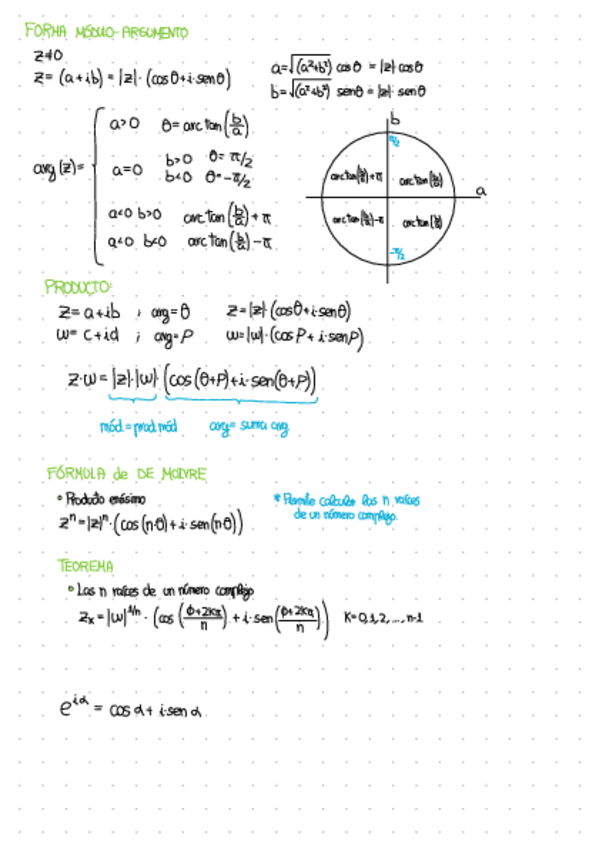 FORMA MÓDULO-ARGUMENTO
z≠0
z= (a+ib) = |z|· (cosθ+i·senθ)
a=√(a²+b²) cosθ = |z| cosθ
b=√(a²+b²) senθ = |z|· senθ
arg(z)=
a>0 θ= arctan(b/a)
a=0 b>0 θ= π/2
b<0 θ=-π/2
a<0 b>0 arctan(b/a)+π
a<0 b<0 arctan(b/a)-π
b
π/2
arctan(b/a)+π arctan(b/a)
a
arctan(b/a)-π arctan(b/a)
-π/2
PRODUCTO:
z= a+ib ; arg=θ z=|z|·(cosθ+i·senθ)
w= c+id ; arg=P w=|w|·(cosP+i·senP)
z·w=|z|·|w|·(cos(θ+P)+i·sen(θ+P))
mód=prod.mód arg= suma arg.
FÓRMULA de DE MOIVRE
° Producto enésimo
zⁿ=|z|ⁿ·(cos(n·θ)+i·sen(n·θ))
* Permite calcular las n raíces
de un número complejo.
TEOREMA
° Las n raíces de un número complejo
zₖ=|w|^1/n · (cos(ϕ+2kπ/n)+i·sen(ϕ+2kπ/n)) K=0,1,2,...,n-1
e^iα = cosα+i·senα